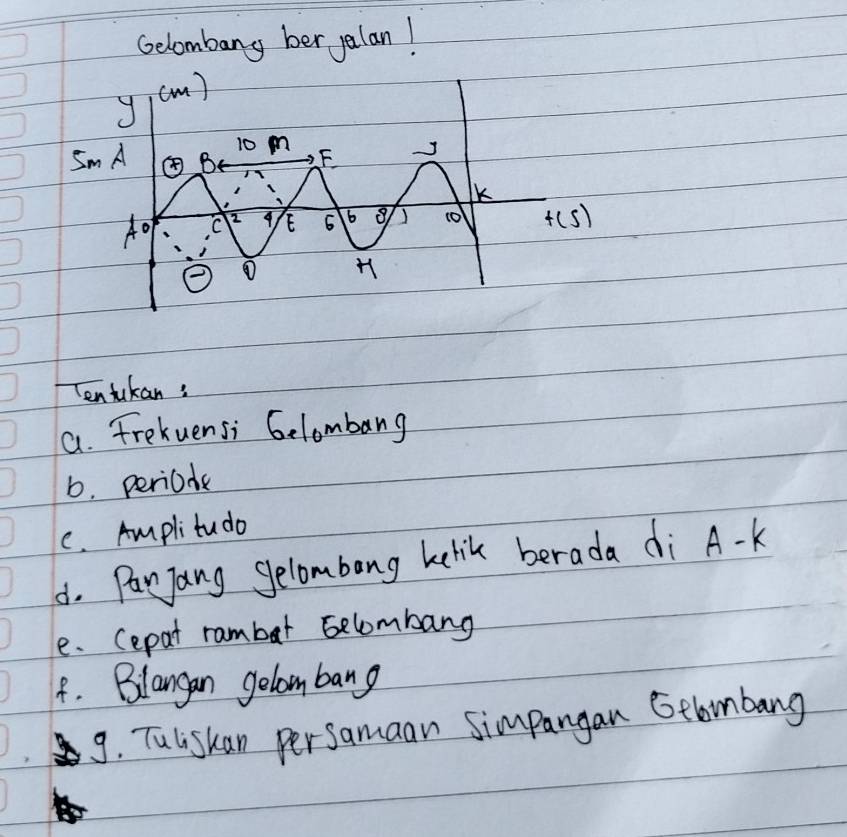 Gelombang berjalan!
y (m)
5m A + B 10 m F J
A 0 C 2 4 E 6 G 8 I 10 K t(s)
- D H
Tentukan :
a. Frekuensi Gelombang
b. periode
c. Amplitudo
d. Panjang gelombang ketik berada di A-K
e. Cepat rambat Gelombang
f. Bilangan gelombang
g. Tuliskan persamaan simpangan Gelombang